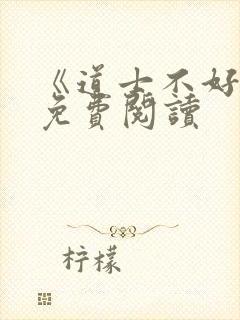 《道士不好
免費閱讀
柠檬